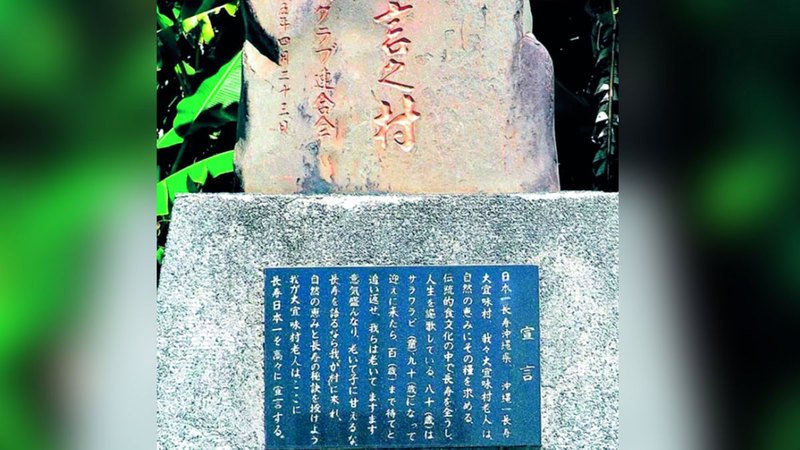 言之村
クラブ連合会
五年四月二十三日
宣言
日本一長寿沖縄県、沖縄一長寿
大宜味村、我々大宜味村老人は
自然の恵みにその糧を求める、
伝統的食文化の中で長寿を全うし、
人生を謳歌している。八十（歳）は
サラワラビ（童）九十（歳）になって
迎えに来たら、百（歳）まで待てと
追い返せ、我らは老いてますます
意気盛んなり、老いて子に甘えるな
長寿を語るなら我が村に来れ、
自然の恵みと長寿の秘訣を授けよう
我が大宜味村老人は、ここに
長寿日本一を高々に宣言する。